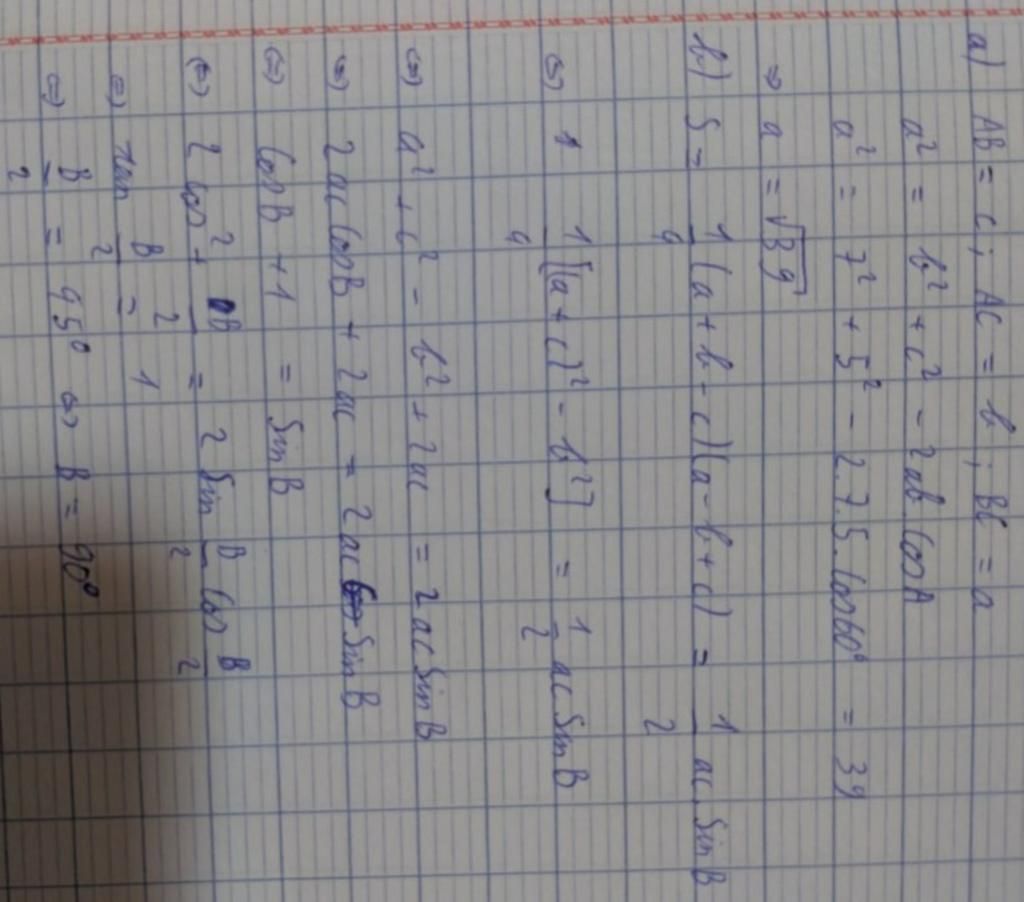 a) AB = c ; AC = b ; BC = a
a² = b² + c² - 2ab.cosA
a² = 7² + 5² - 2.7.5.cos60° = 39
⇒ a = √39
b) S = 1/4 (a + b - c)(a - b + c) = 1/2 ac.sinB
⇔ 1 1/4 [(a + c)² - b²] = 1/2 ac sinB
⇔ a² + c² - b² + 2ac = 2ac sinB
⇔ 2ac cosB + 2ac = 2ac sinB
⇔ cosB + 1 = sinB
⇔ 2 cos² + B/2 = 2 sin B/2 cos B/2
⇔ tan B/2 = 1
⇔ B/2 = 45° ⇔ B = 90°